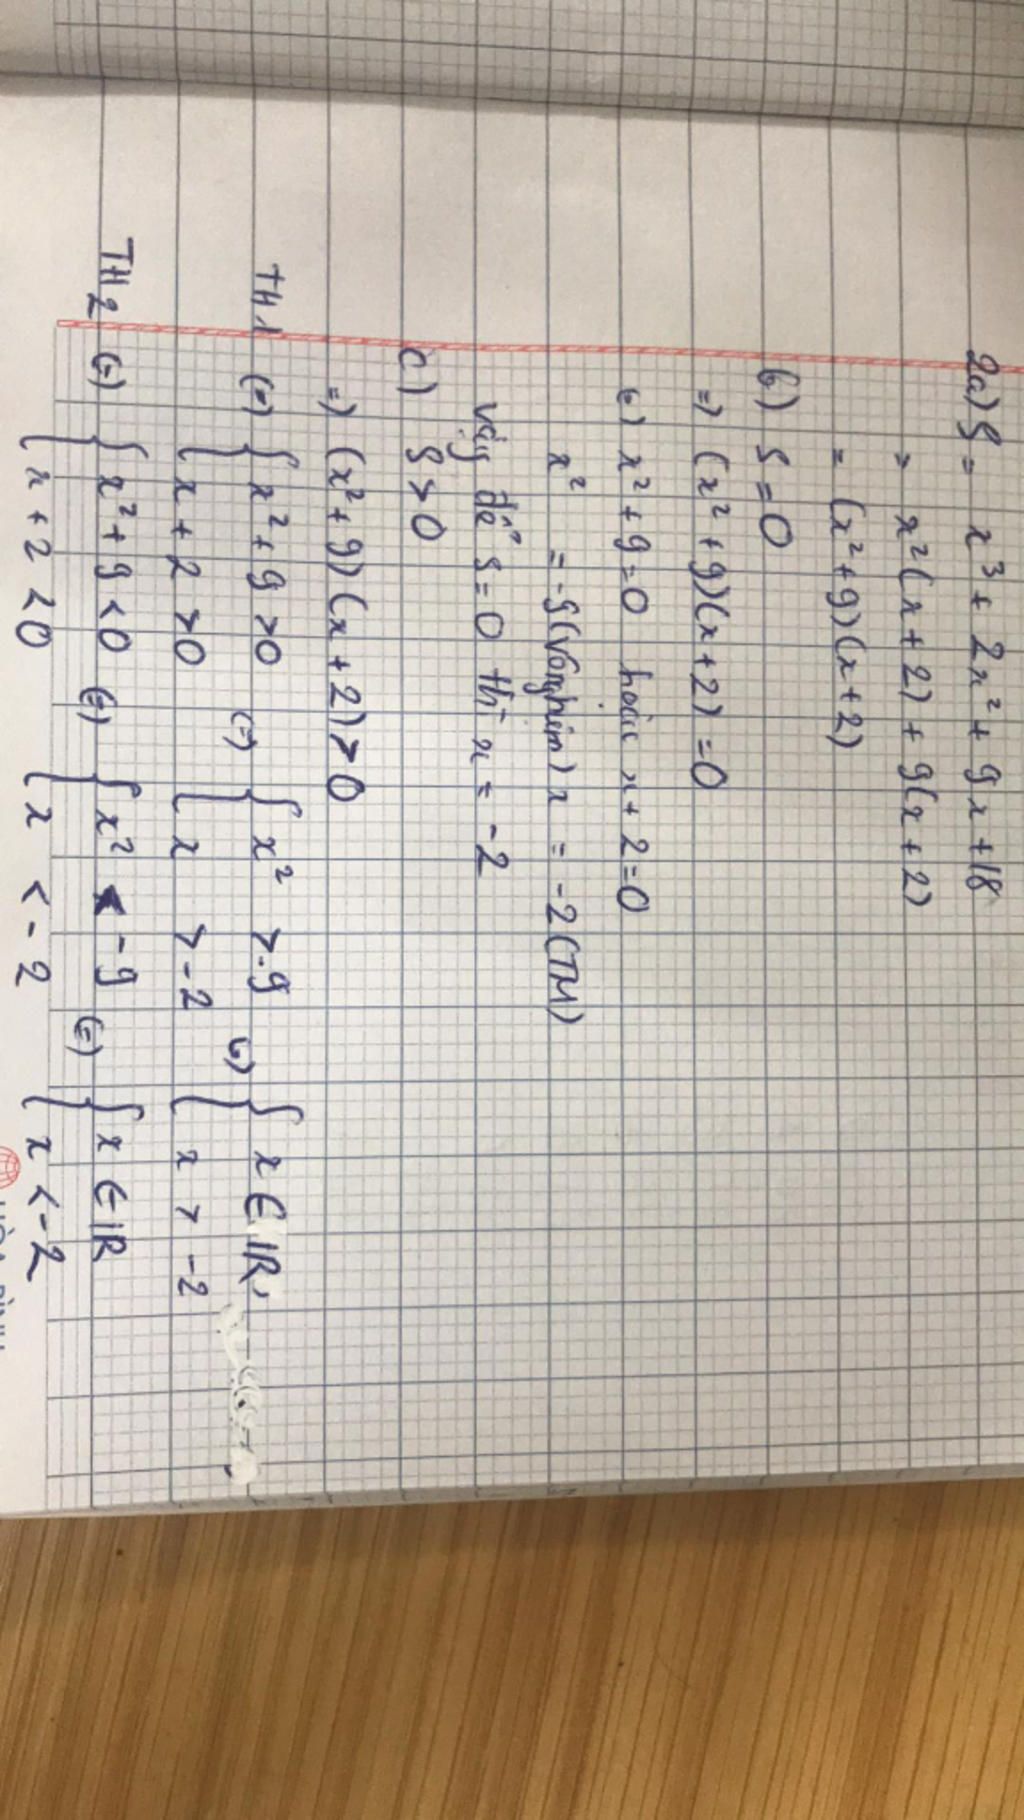 2a) S = x³ + 2x² + 9x + 18
= x²(x + 2) + 9(x + 2)
= (x² + 9)(x + 2)
b) S = 0
=) (x² + 9)(x + 2) = 0
(=) x² + 9 = 0 hoặc x + 2 = 0
x² = -9 (Vô nghiệm) x = -2 (TM)
Vậy để S = 0 thì x = -2
c) S > 0
=) (x² + 9)(x + 2) > 0
TH1 (=) { x² + 9 > 0 (=) { x² > -9 (=) { x ∈ IR
{ x + 2 > 0 { x > -2 { x > -2
TH2 (=) { x² + 9 < 0 (=) { x² < -9 (=) { x ∈ IR
{ x + 2 < 0 { x < -2 { x < -2